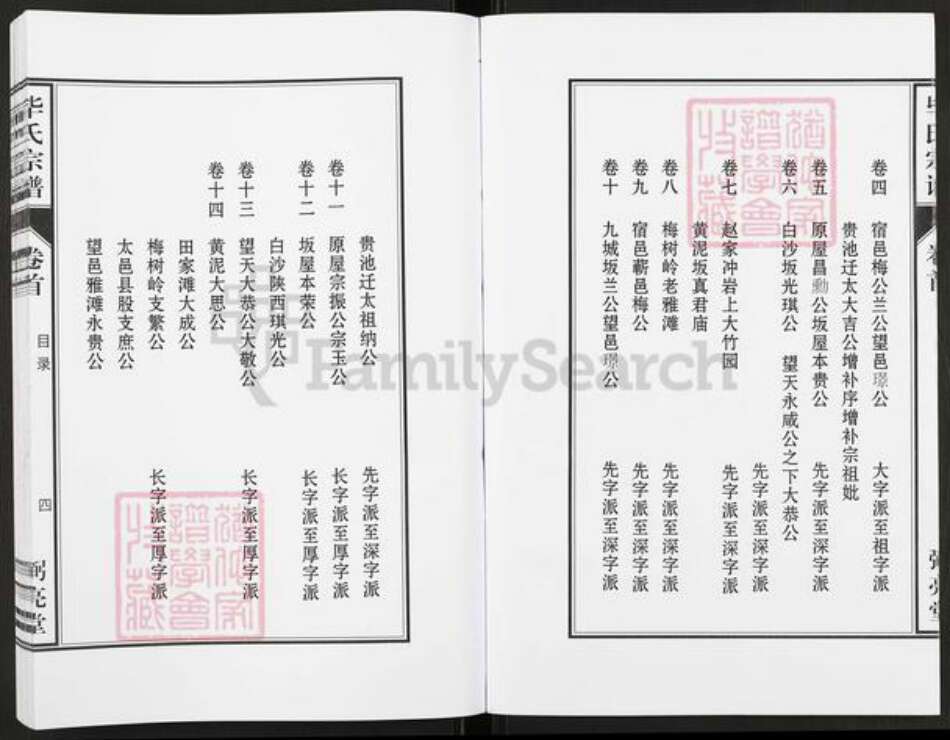 卷四 宿邑梅公兰公望邑璟公 大字派至祖字派
贵池迁太大吉公增补序增补宗祖妣
卷五 原屋昌勳公坂屋本贵公 先字派至深字派
卷六 白沙坂光琪公 望天永咸公之下大恭公
先字派至深字派
卷七 赵家冲岩上大竹园 先字派至深字派
黄泥坂真君庙
卷八 梅树岭老雅滩 先字派至深字派
卷九 宿邑蕲邑梅公 先字派至深字派
卷十 九城坂兰公望邑璟公 先字派至深字派
毕氏宗谱 卷首 目录 四 弼亮堂
贵池迁太祖纳公 先字派至深字派
卷十一 原屋宗振公宗玉公 长字派至厚字派
卷十二 坂屋本荣公 长字派至厚字派
白沙陕西琪光公
卷十三 望天大恭公大敬公 长字派至厚字派
卷十四 黄泥大思公
田家滩大成公
梅树岭支繁公 长字派至厚字派
太邑县股支庶公
望邑雅滩永贵公
FamilySearch